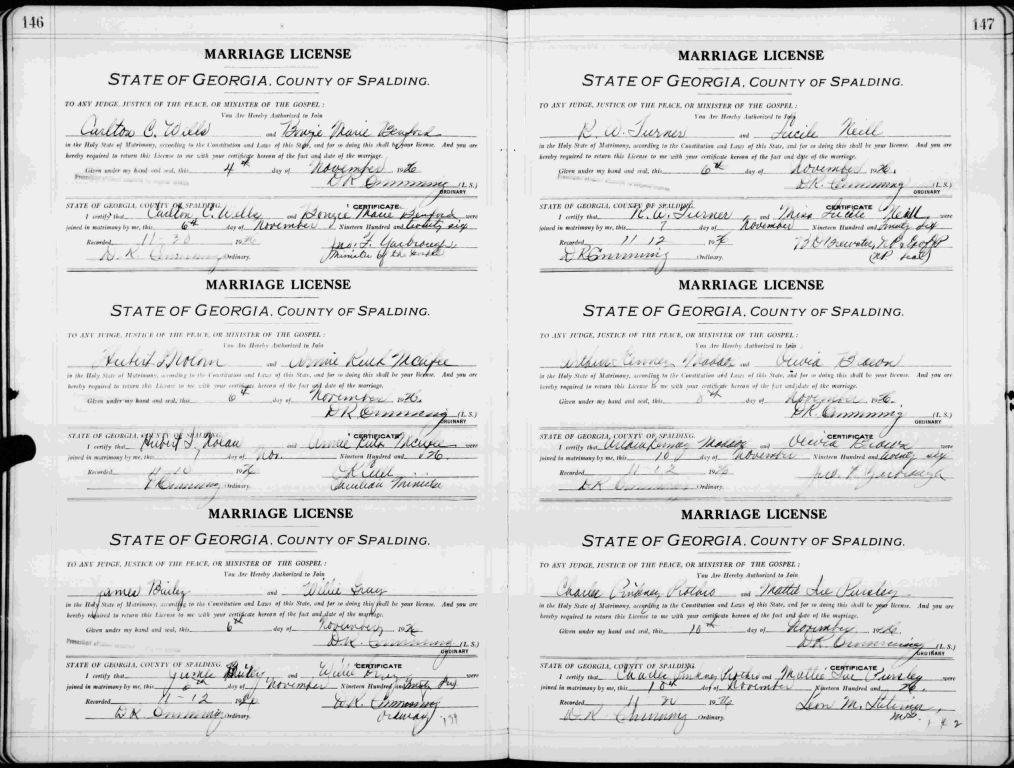 146
MARRIAGE LICENSE
STATE OF GEORGIA, COUNTY OF SPALDING.
TO ANY JUDGE, JUSTICE OF THE PEACE, OR MINISTER OF THE GOSPEL:
You Are Hereby Authorized to Join
Carlton C. Wells and Bonzie Marie Benford
in the Holy State of Matrimony, according to the Constitution and Laws of this State, and for so doing this shall be your license. And you are
hereby required to return this License to me with your certificate hereon of the fact and date of the marriage.
Given under my hand and seal, this 4th day of November 1926
D.R. Cumming (L. S.)
ORDINARY
STATE OF GEORGIA, COUNTY OF SPALDING. CERTIFICATE
I certify that Carlton C. Wells and Bonzie Marie Benford were
joined in matrimony by me, this 6th day of November Nineteen Hundred and twenty six
Recorded 11-30 1926 Jno. F. Yarbrough
D. R. Cumming Ordinary. Minister of the Gospel
MARRIAGE LICENSE
STATE OF GEORGIA, COUNTY OF SPALDING.
TO ANY JUDGE, JUSTICE OF THE PEACE, OR MINISTER OF THE GOSPEL:
You Are Hereby Authorized to Join
Hubert and Annie Ruth
in the Holy State of Matrimony, according to the Constitution and Laws of this State, and for so doing this shall be your license. And you are
hereby required to return this License to me with your certificate hereon of the fact and date of the marriage.
Given under my hand and seal, this 6th day of November 1926.
D.R. Cumming (L. S.)
ORDINARY
STATE OF GEORGIA, COUNTY OF SPALDING. CERTIFICATE
I certify that Hubert and Annie Ruth were
joined in matrimony by me, this 7 day of Nov. Nineteen Hundred and 26
Recorded 1926
Cumming Ordinary.
MARRIAGE LICENSE
STATE OF GEORGIA, COUNTY OF SPALDING.
TO ANY JUDGE, JUSTICE OF THE PEACE, OR MINISTER OF THE GOSPEL:
You Are Hereby Authorized to Join
James and Willie
in the Holy State of Matrimony, according to the Constitution and Laws of this State, and for so doing this shall be your license. And you are
hereby required to return this License to me with your certificate hereon of the fact and date of the marriage.
Given under my hand and seal, this 6th day of November 1926
D.R. Cumming (L. S.)
ORDINARY
STATE OF GEORGIA, COUNTY OF SPALDING. CERTIFICATE
I certify that and Willie were
joined in matrimony by me, this day of November Nineteen Hundred and twenty six
Recorded 11-12 1926 D.R. Cumming
D. R. Cumming Ordinary. Ordinary
147
MARRIAGE LICENSE
STATE OF GEORGIA, COUNTY OF SPALDING.
TO ANY JUDGE, JUSTICE OF THE PEACE, OR MINISTER OF THE GOSPEL:
You Are Hereby Authorized to Join
R. W. Turner and Lucile Neill
in the Holy State of Matrimony, according to the Constitution and Laws of this State, and for so doing this shall be your license. And you are
hereby required to return this License to me with your certificate hereon of the fact and date of the marriage.
Given under my hand and seal, this 6th day of November 1926.
D.R. Cumming (L. S.)
ORDINARY
STATE OF GEORGIA, COUNTY OF SPALDING. CERTIFICATE
I certify that R. W. Turner and Miss Lucile Neill were
joined in matrimony by me, this 7 day of November Nineteen Hundred and twenty six
Recorded 11 12 1926
D R Cumming Ordinary. (N.P. seal)
MARRIAGE LICENSE
STATE OF GEORGIA, COUNTY OF SPALDING.
TO ANY JUDGE, JUSTICE OF THE PEACE, OR MINISTER OF THE GOSPEL:
You Are Hereby Authorized to Join
Arthur Maddox and Brown
in the Holy State of Matrimony, according to the Constitution and Laws of this State, and for so doing this shall be your license. And you are
hereby required to return this License to me with your certificate hereon of the fact and date of the marriage.
Given under my hand and seal, this 8th day of November 1926.
D.R. Cumming (L. S.)
ORDINARY
STATE OF GEORGIA, COUNTY OF SPALDING. CERTIFICATE
I certify that Maddox and Brown were
joined in matrimony by me, this 10 day of November Nineteen Hundred and twenty six
Recorded 11-12 1926 Jno. F. Yarbrough
D. R. Cumming Ordinary.
MARRIAGE LICENSE
STATE OF GEORGIA, COUNTY OF SPALDING.
TO ANY JUDGE, JUSTICE OF THE PEACE, OR MINISTER OF THE GOSPEL:
You Are Hereby Authorized to Join
Charlie Pinkney and Mattie Sue Pursley
in the Holy State of Matrimony, according to the Constitution and Laws of this State, and for so doing this shall be your license. And you are
hereby required to return this License to me with your certificate hereon of the fact and date of the marriage.
Given under my hand and seal, this 10th day of November 1926.
D.R. Cumming (L. S.)
ORDINARY
STATE OF GEORGIA, COUNTY OF SPALDING. CERTIFICATE
I certify that Charlie Pinkney and Mattie Sue Pursley were
joined in matrimony by me, this 10th day of November Nineteen Hundred and 26.
Recorded 11 1926 Leon M. Latimer,
D. R. Cumming Ordinary.